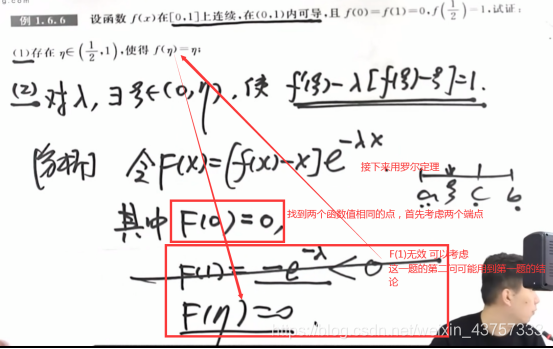 g.com
例 1.6.6 设函数 f(x)在[0,1]上连续,在(0,1)内可导,且 f(0)=f(1)=0,f(1/2)=1,试证:
(1)存在 η∈(1/2,1),使得 f(η)=η;
(2) 对λ, ∃ξ∈(0,η), 使 f'(ξ)-λ[f(ξ)-ξ]=1.
令F(x)=[f(x)-x]e^{-λx}
接下来用罗尔定理
a ξ c b
其中 F(0)=0,
找到两个函数值相同的点,首先考虑两个端点
F(1)=-e^{-λ}<0
F(1)无效 可以考虑
这一题的第二问可能用到第一题的结
论
F(η)=0
https://blog.csdn.net/weixin_43757333